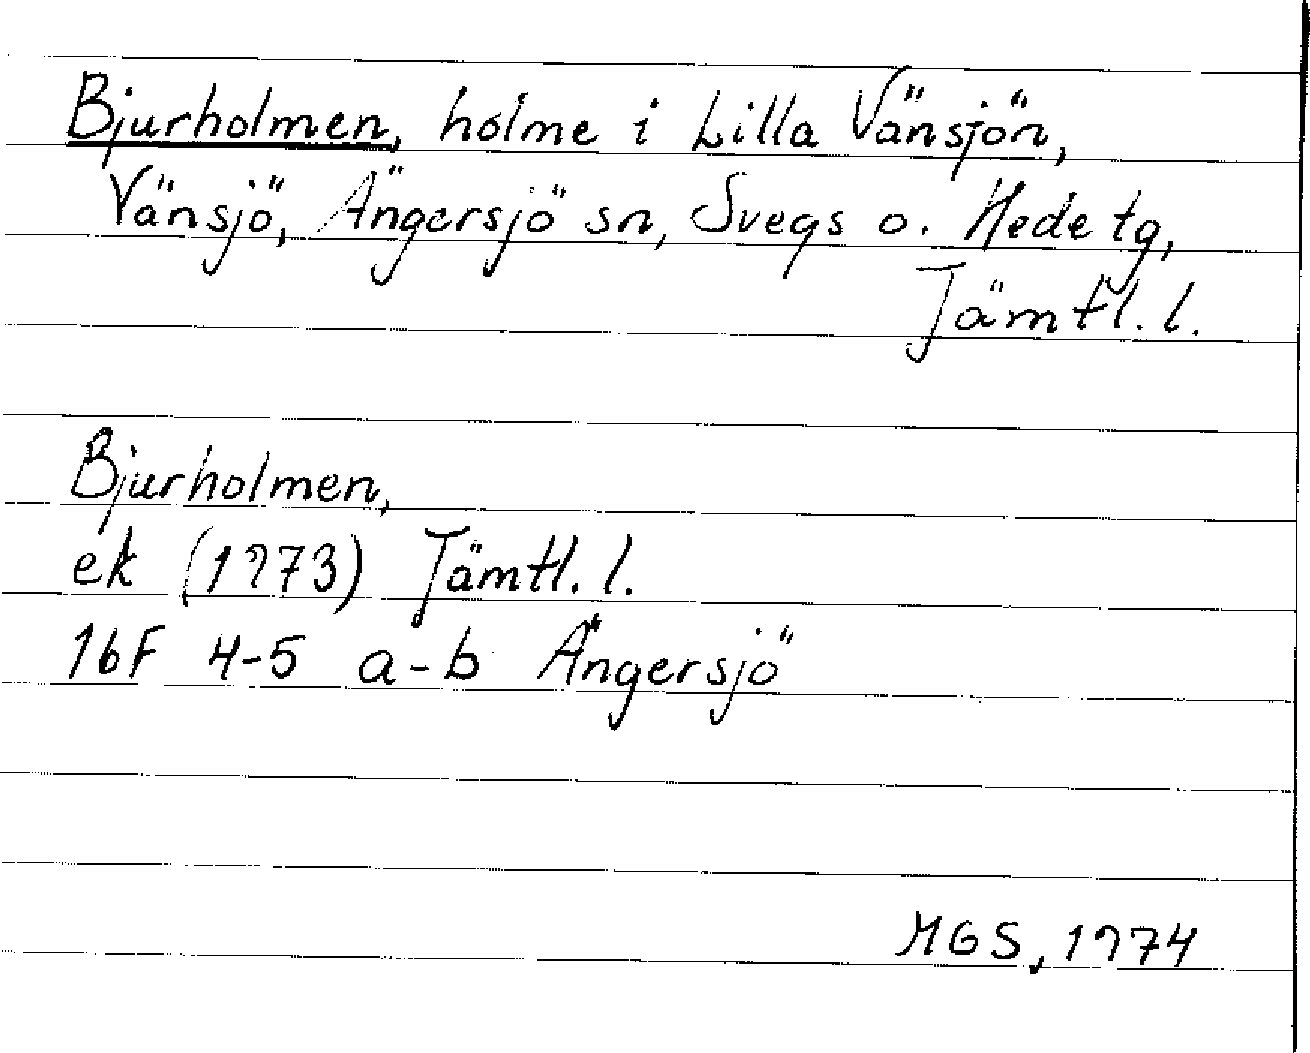 Bjurholmen, holme i Lilla Vänsjön,
Vänsjö, Ängersjö sn, Svegs o. Hede tg,
Jämtl. l.
Bjurholmen,
ek (1973) Jämtl. l.
16F 4-5 a-b Ängersjö
MGS, 1974